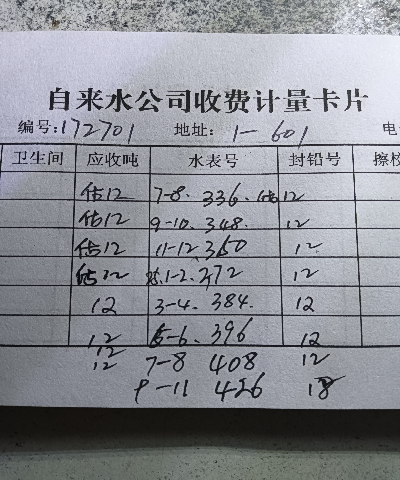 自来水公司收费计量卡片
编号:172701 地址: 1-601 电
卫生间 应收吨 水表号 封铅号 擦校
估12 7-8. 336. 估12
估12 9-10. 348. 12
估12 11-12. 360 12
估12 1-2. 372 12
12 3-4. 384. 12
12 5-6. 396 12
12
12 7-8 408 12
9-11 426 18